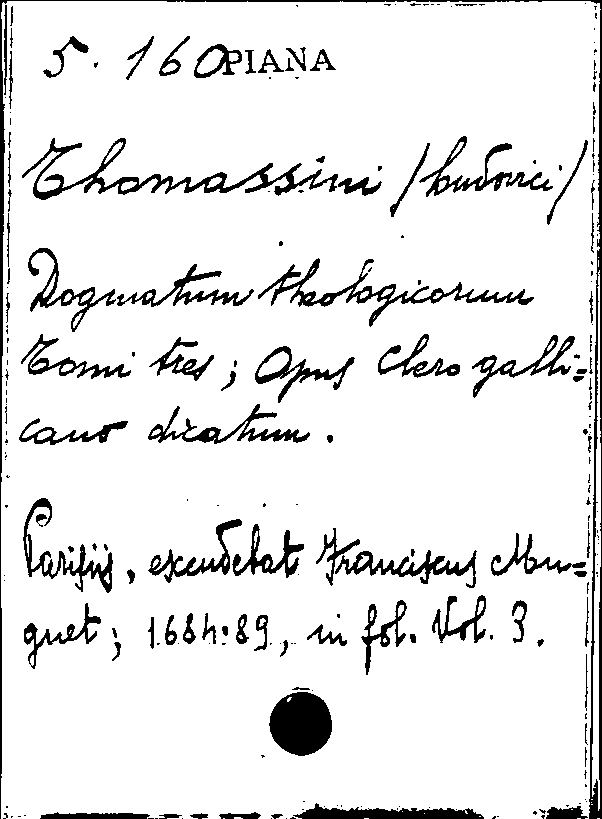 5. 160 PIANA
Thomassini /Ludovici/
Dogmatum theologicorum
Tomi tres; Opus Clero galli=
cano dicatum.
Parisijs, excudebat Franciscus Mu=
guet; 1684:89, in fol. Vol. 3.